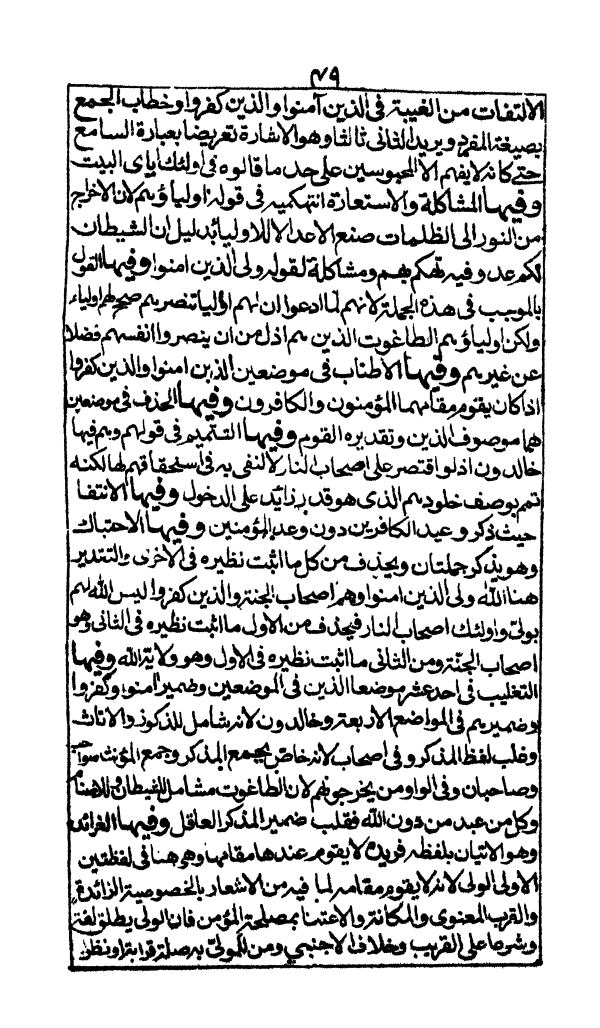 ٧٩
الالتفات من الغيبة فى الذين آمنوا والذين كفروا وخطاب الجمع
بصيغة المفرد ويريد الثانى ثالثا وهو الاشارة تعريضا بعبارة السامع
حتى كانه لا يفهم الا المحبوسين على حد ما قالوه فى اولئك اباى البيت
وفيها المشاكلة والاستعارة التهكمية فى قوله اولياؤهم لان الاخراج
من النور الى الظلمات صنع الاعداء لا الاولياء بدليل ان الشيطان
لكم عدو وفيه تهكم بهم ومشاكلة لقوله ولى الذين امنوا وفيها القول
بالموجب فى هذه الجملة لانهم لما ادعوا ان لهم اولياء تنصرهم صح لهم اولياء
ولكن اولياؤهم الطاغوت الذين هم اذل من ان ينصروا انفسهم فضلا
عن غيرهم وفيها الاطناب فى موضعين الذين امنوا والذين كفروا
اذ كان يقوم مقامهما المؤمنون والكافرون وفيها الحذف فى موضعين
هما موصوف الذين وتقديره القوم وفيها التتميم فى قولهم وهم فيها
خالدون اذ لو اقتصر على اصحاب النار لاكتفى به فى استحقاقهم لها لكنه
تمم بوصف خلودهم الذى هو قدر زائد على الدخول وفيها الانتفا
حيث ذكر وعيد الكافرين دون وعد المؤمنين وفيها الاحتباك
وهو يذكر جملتان ويحذف من كل ما اثبت نظيره فى الاخرى والتقدير
هنا الله ولى الذين امنوا وهم اصحاب الجنة والذين كفروا ليس الله لهم
بولى واولئك اصحاب النار فيحذف من الاول ما اثبت نظيره فى الثانى وهو
اصحاب الجنة ومن الثانى ما اثبت نظيره فى الاول وهو ولاية الله وفيها
التغليب فى احد عشر موضعا الذين فى الموضعين وضمير امنوا وكفروا
وضميرهم فى المواضع الاربعة وخالدون لانه شامل للذكور والاناث
وغلب لفظ المذكر وفى اصحاب لانه خاص بجمع المذكر وجمع المؤنث صواحب
وصاحبات وفى الواو من يخرجونهم لان الطاغوت مشامل للشيطان وللاصنام
وكل من عبد من دون الله فقلب ضمير المذكر العاقل وفيها الفرائد
وهو الاتيان بلفظه فريدة لا يقوم عندها مقامها وهو هنا فى لفظتين
الاولى الولى لانه لا يقوم مقامه لما فيه من الاشعار بالخصوصية الزائدة
والقرب المعنوى والمكانة والاعتنا بمصلحة المؤمن فان الولى يطلق لغة
وشرعا على القريب وخلاف الاجنبي ومن للمولى به صلة قرابة او نظر